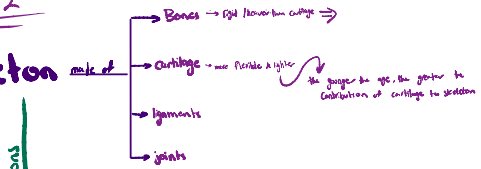 2
eton made of
Bones → rigid / heavier than cartilage ⇒
cartilage → more flexible & lighter
the younger the age, the greater the
contribution of cartilage to skeleton
ligaments
joints
ons